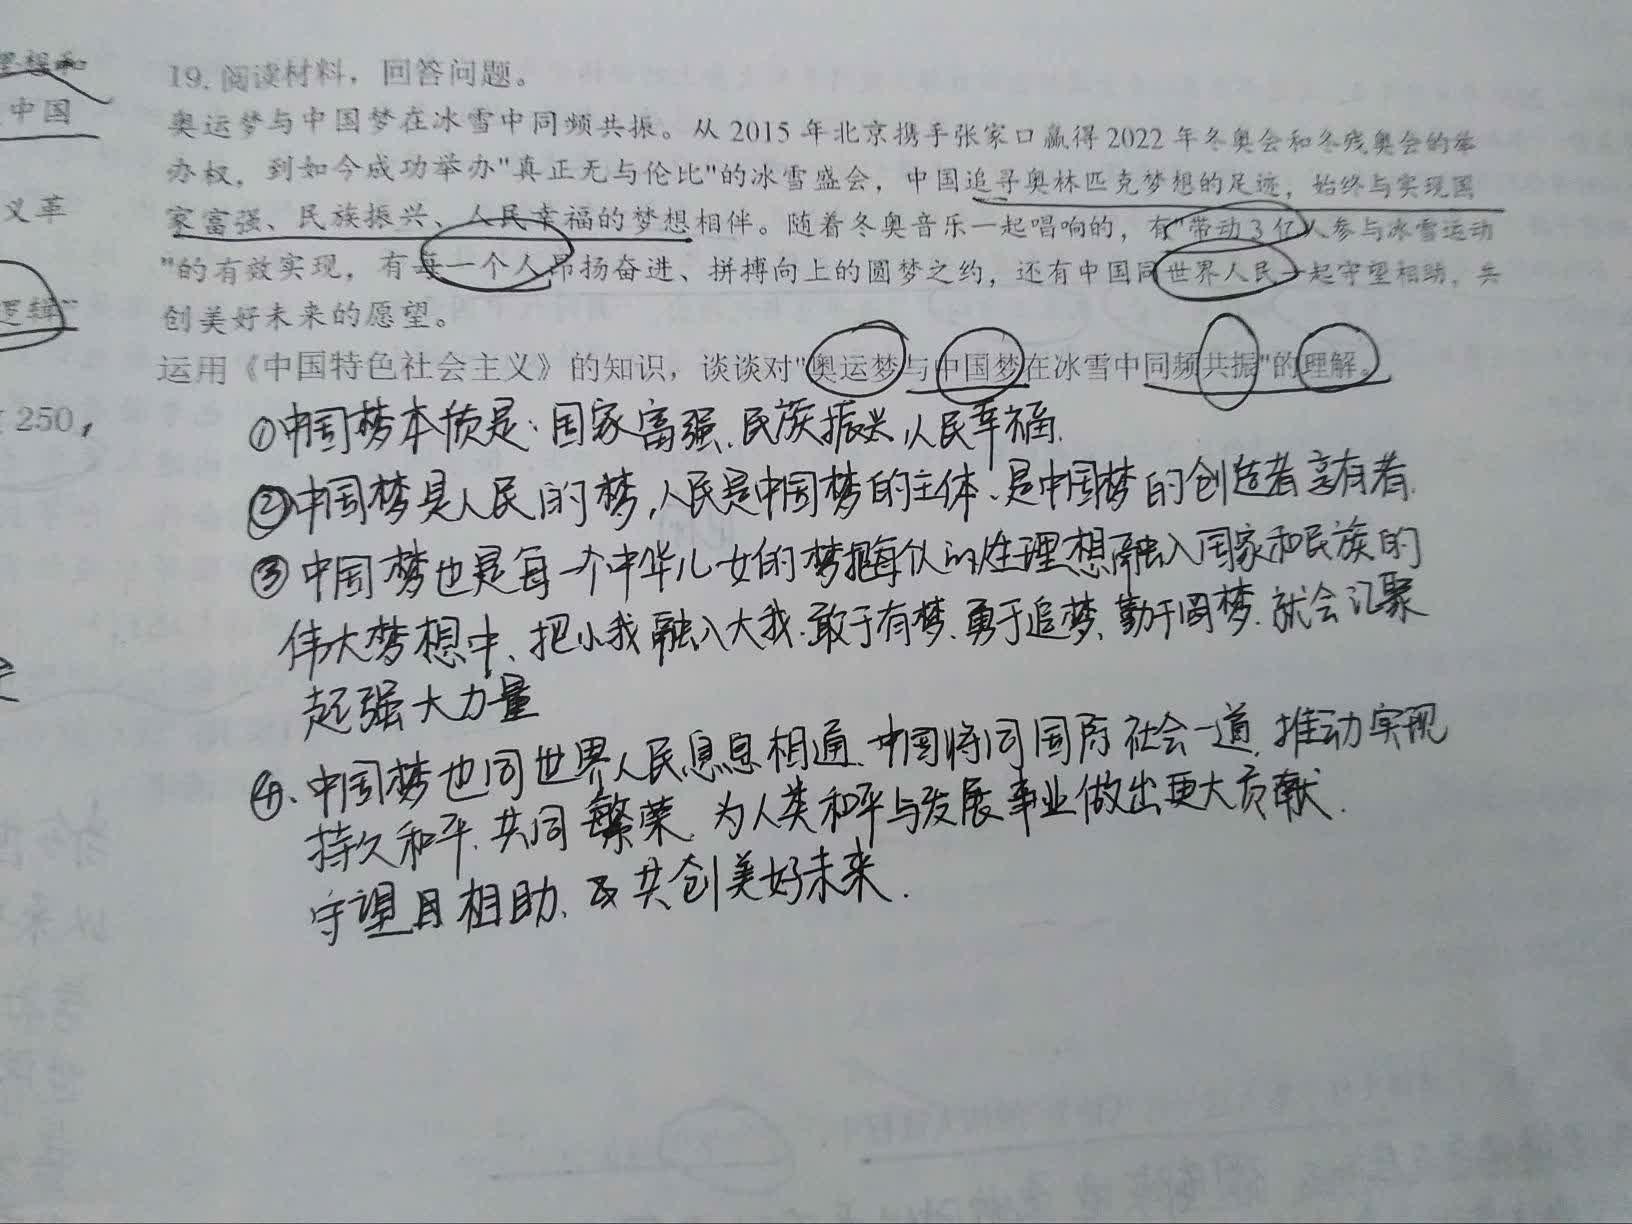 中国
义革
逻辑"
250,
19. 阅读材料，回答问题。
奥运梦与中国梦在冰雪中同频共振。从 2015 年北京携手张家口赢得 2022 年冬奥会和冬残奥会的举
办权，到如今成功举办"真正无与伦比"的冰雪盛会，中国追寻奥林匹克梦想的足迹，始终与实现国
家富强、民族振兴、人民幸福的梦想相伴。随着冬奥音乐一起唱响的，有"带动 3 亿人参与冰雪运动
"的有效实现，有每一个人昂扬奋进、拼搏向上的圆梦之约，还有中国同世界人民一起守望相助，共
创美好未来的愿望。
运用《中国特色社会主义》的知识，谈谈对"奥运梦与中国梦在冰雪中同频共振"的理解。
①中国梦本质是：国家富强、民族振兴，人民幸福.
②中国梦是人民的梦，人民是中国梦的主体、是中国梦的创造者享有者.
③ 中国梦也是每一个中华儿女的梦把每个人的理想融入国家和民族的
伟大梦想中、把小我融入大我.敢于有梦、勇于追梦、勤于圆梦.就会汇聚
起强大力量
④、中国梦也同世界人民息息相通、中国将同国际社会一道，推动实现
持久和平、共同繁荣，为人类和平与发展事业做出更大贡献.
守望相助、共创美好未来.